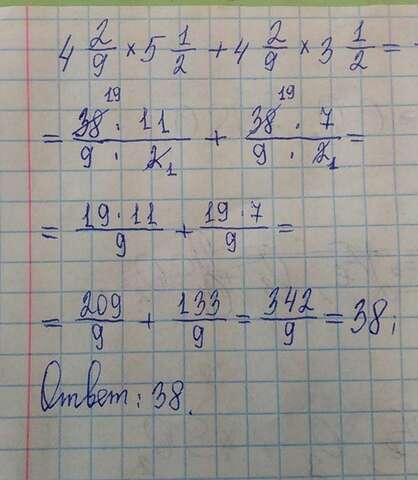 4 2/9 × 5 1/2 + 4 2/9 × 3 1/2 =
= 38 19 · 11 / 9 · 2 1 + 38 19 · 7 / 9 · 2 1 =
= 19 · 11 / 9 + 19 · 7 / 9 =
= 209/9 + 133/9 = 342/9 = 38;
Ответ: 38.